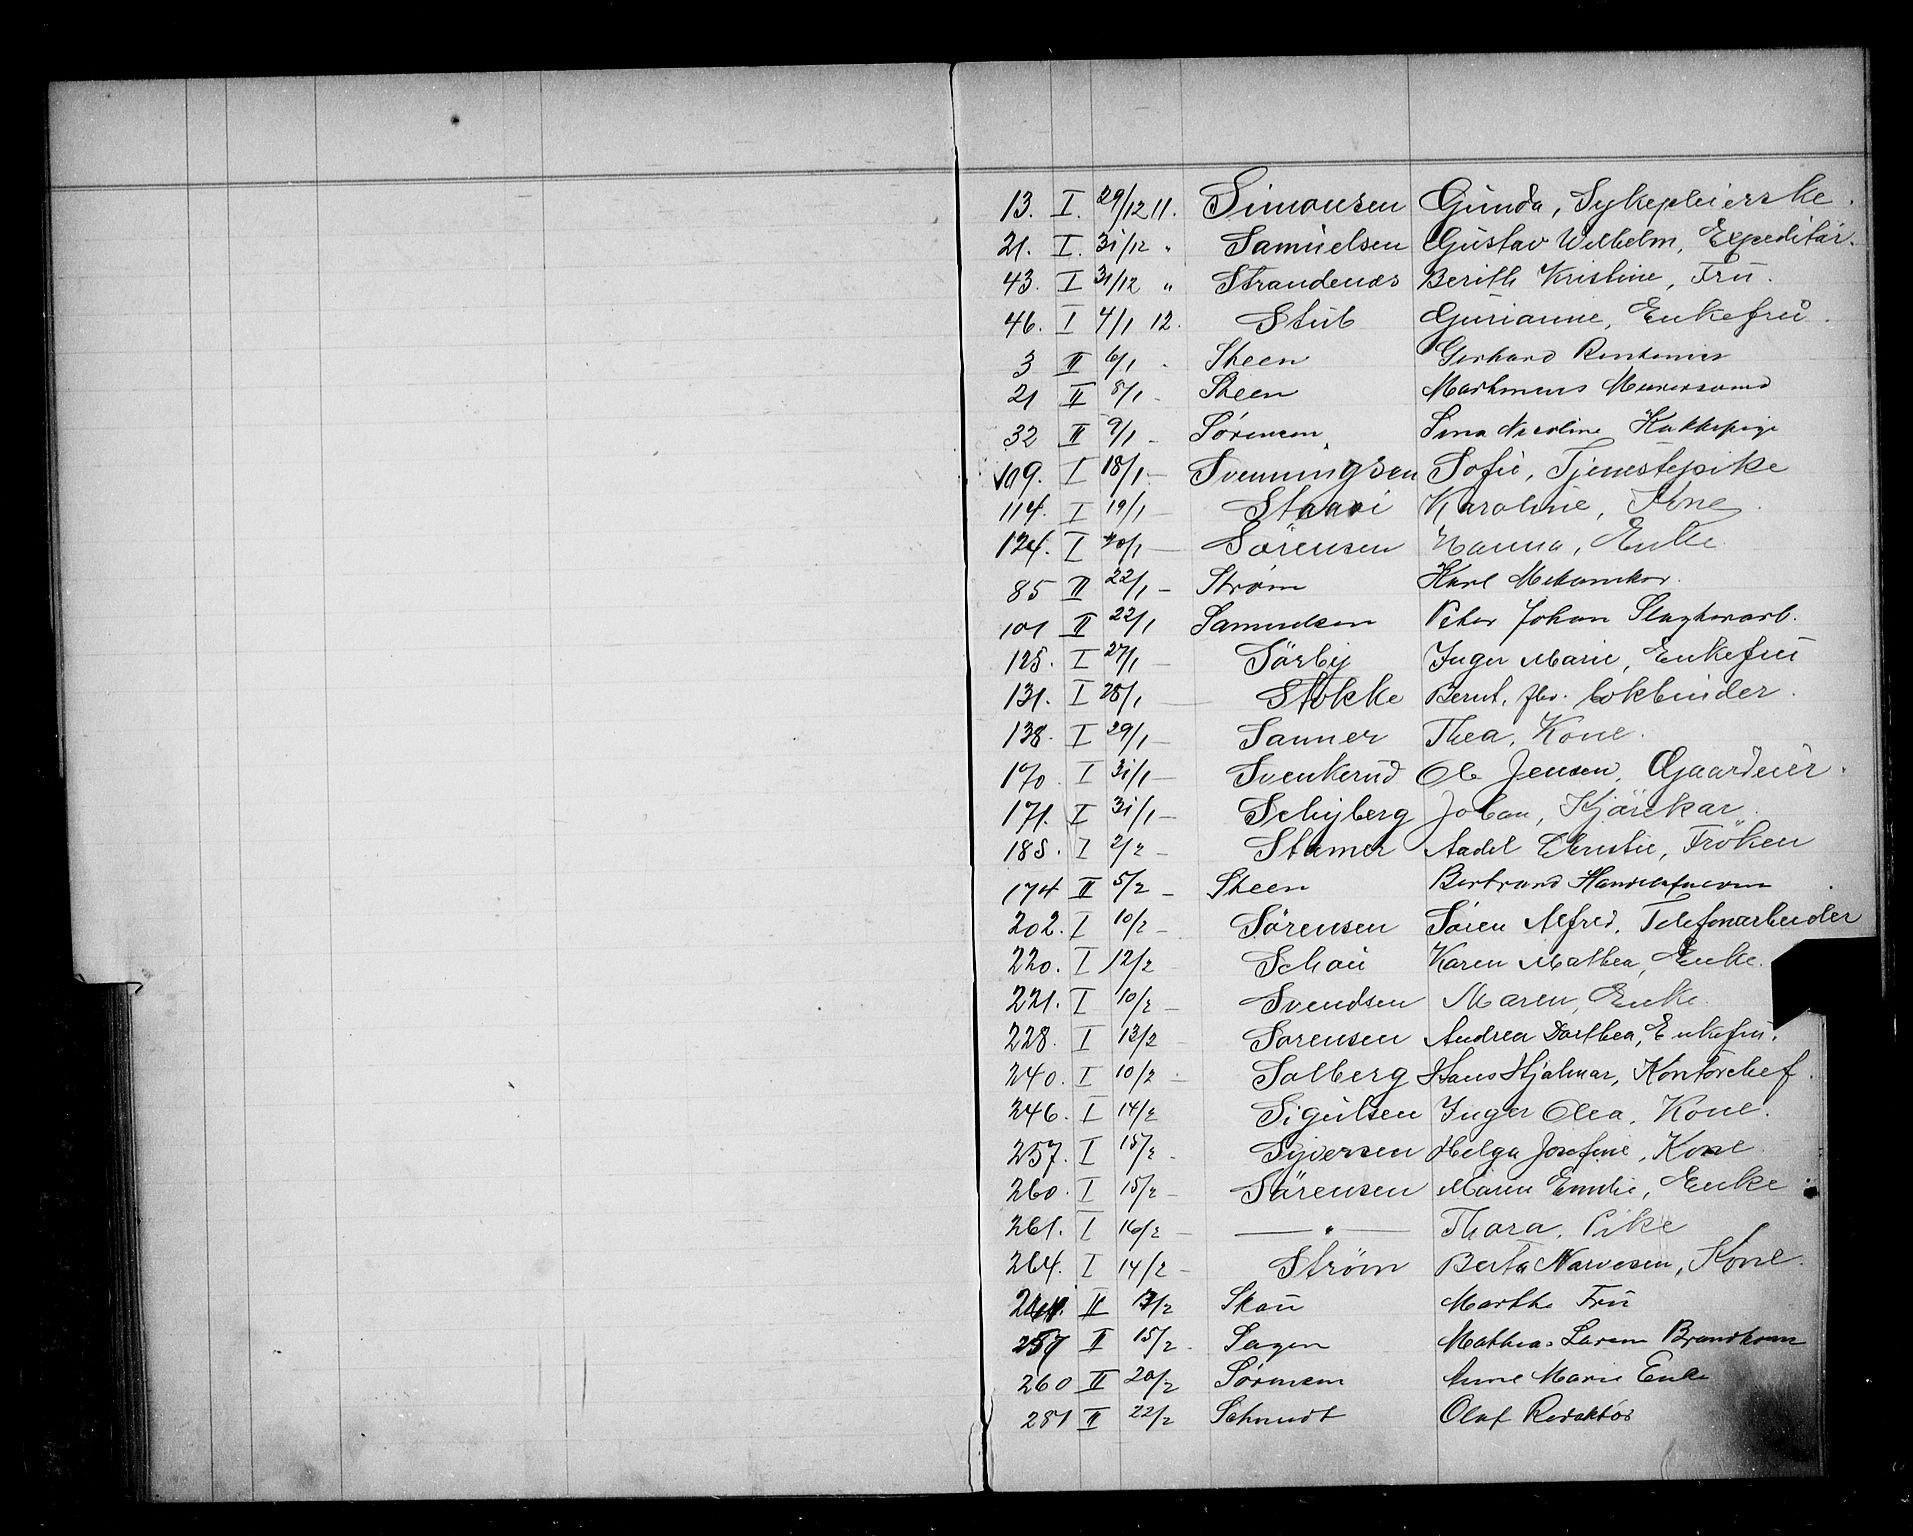 13. I. 29/12 11. Simonsen Gunda, Sykepleierske.
21. I. 31/12 " Samuelsen Gustav Wilhelm, Expeditør.
43. I 31/12 " Strandenæs Berith Kristine, Fru.
46. I 4/1 12. Stub Gurianne, Enkefru.
3 II 6/1 Steen Gerhard Rentenier
21 II 8/1 - Steen
32 II 9/1 - Sörensen
109. I 18/1 - Svenningsen Sofie, Tjenestepike
114. I 19/1 - Karoline, Kone
124. I 20/1 - Sørensen Hanna, Enke
85 II 22/1 - Strøm Karl Mekaniker.
101 II 22/1 Samuelsen Peter Johan Slagterarb.
125. I 27/1 - Sørby Inger Marie, Enkefru
131. I 28/1 - Stokke Bernt, fhv. bokbinder.
138. I 29/1 - Sanner Thea, Kone.
170. I 31/1 - Svenkerud Ole Jensen, Gaardeier.
171. I 31/1 - Schyberg Johan, Kjørekar.
185. I 2/2 - Stamer Aadel Christie, Frøken
174 II 5/2 - Steen Bertrand
202. I 10/2 - Sørensen Søren Alfred, Telefonarbeider
220. I 12/2 Schou Karen Mathea, Enke.
221. I 10/2 - Svendsen Maren, Enke.
228. I 13/2 - Sørensen Andrea Dorthea, Enkefru.
240. I 10/2 - Solberg Hans Hjalmar, Kontorchef.
246. I 14/2 Sigurdsen Inger Olea, Kone.
257. I 15/2 - Syversen Helga Josefine, Kone.
260. I 15/2 - Sørensen Maren Emilie, Enke.
261. I 16/2 - — " — Thora, Pike
264. I 14/2 - Strøm Berta Narvesen, Kone.
II 13/2 Skau Marthe Fru
257 II 15/2 - Sagen Mathias Laren
260 II 20/2 Sörensen Anne Marie Enke
281 II 22/2 Schmidt Olaf Redaktör